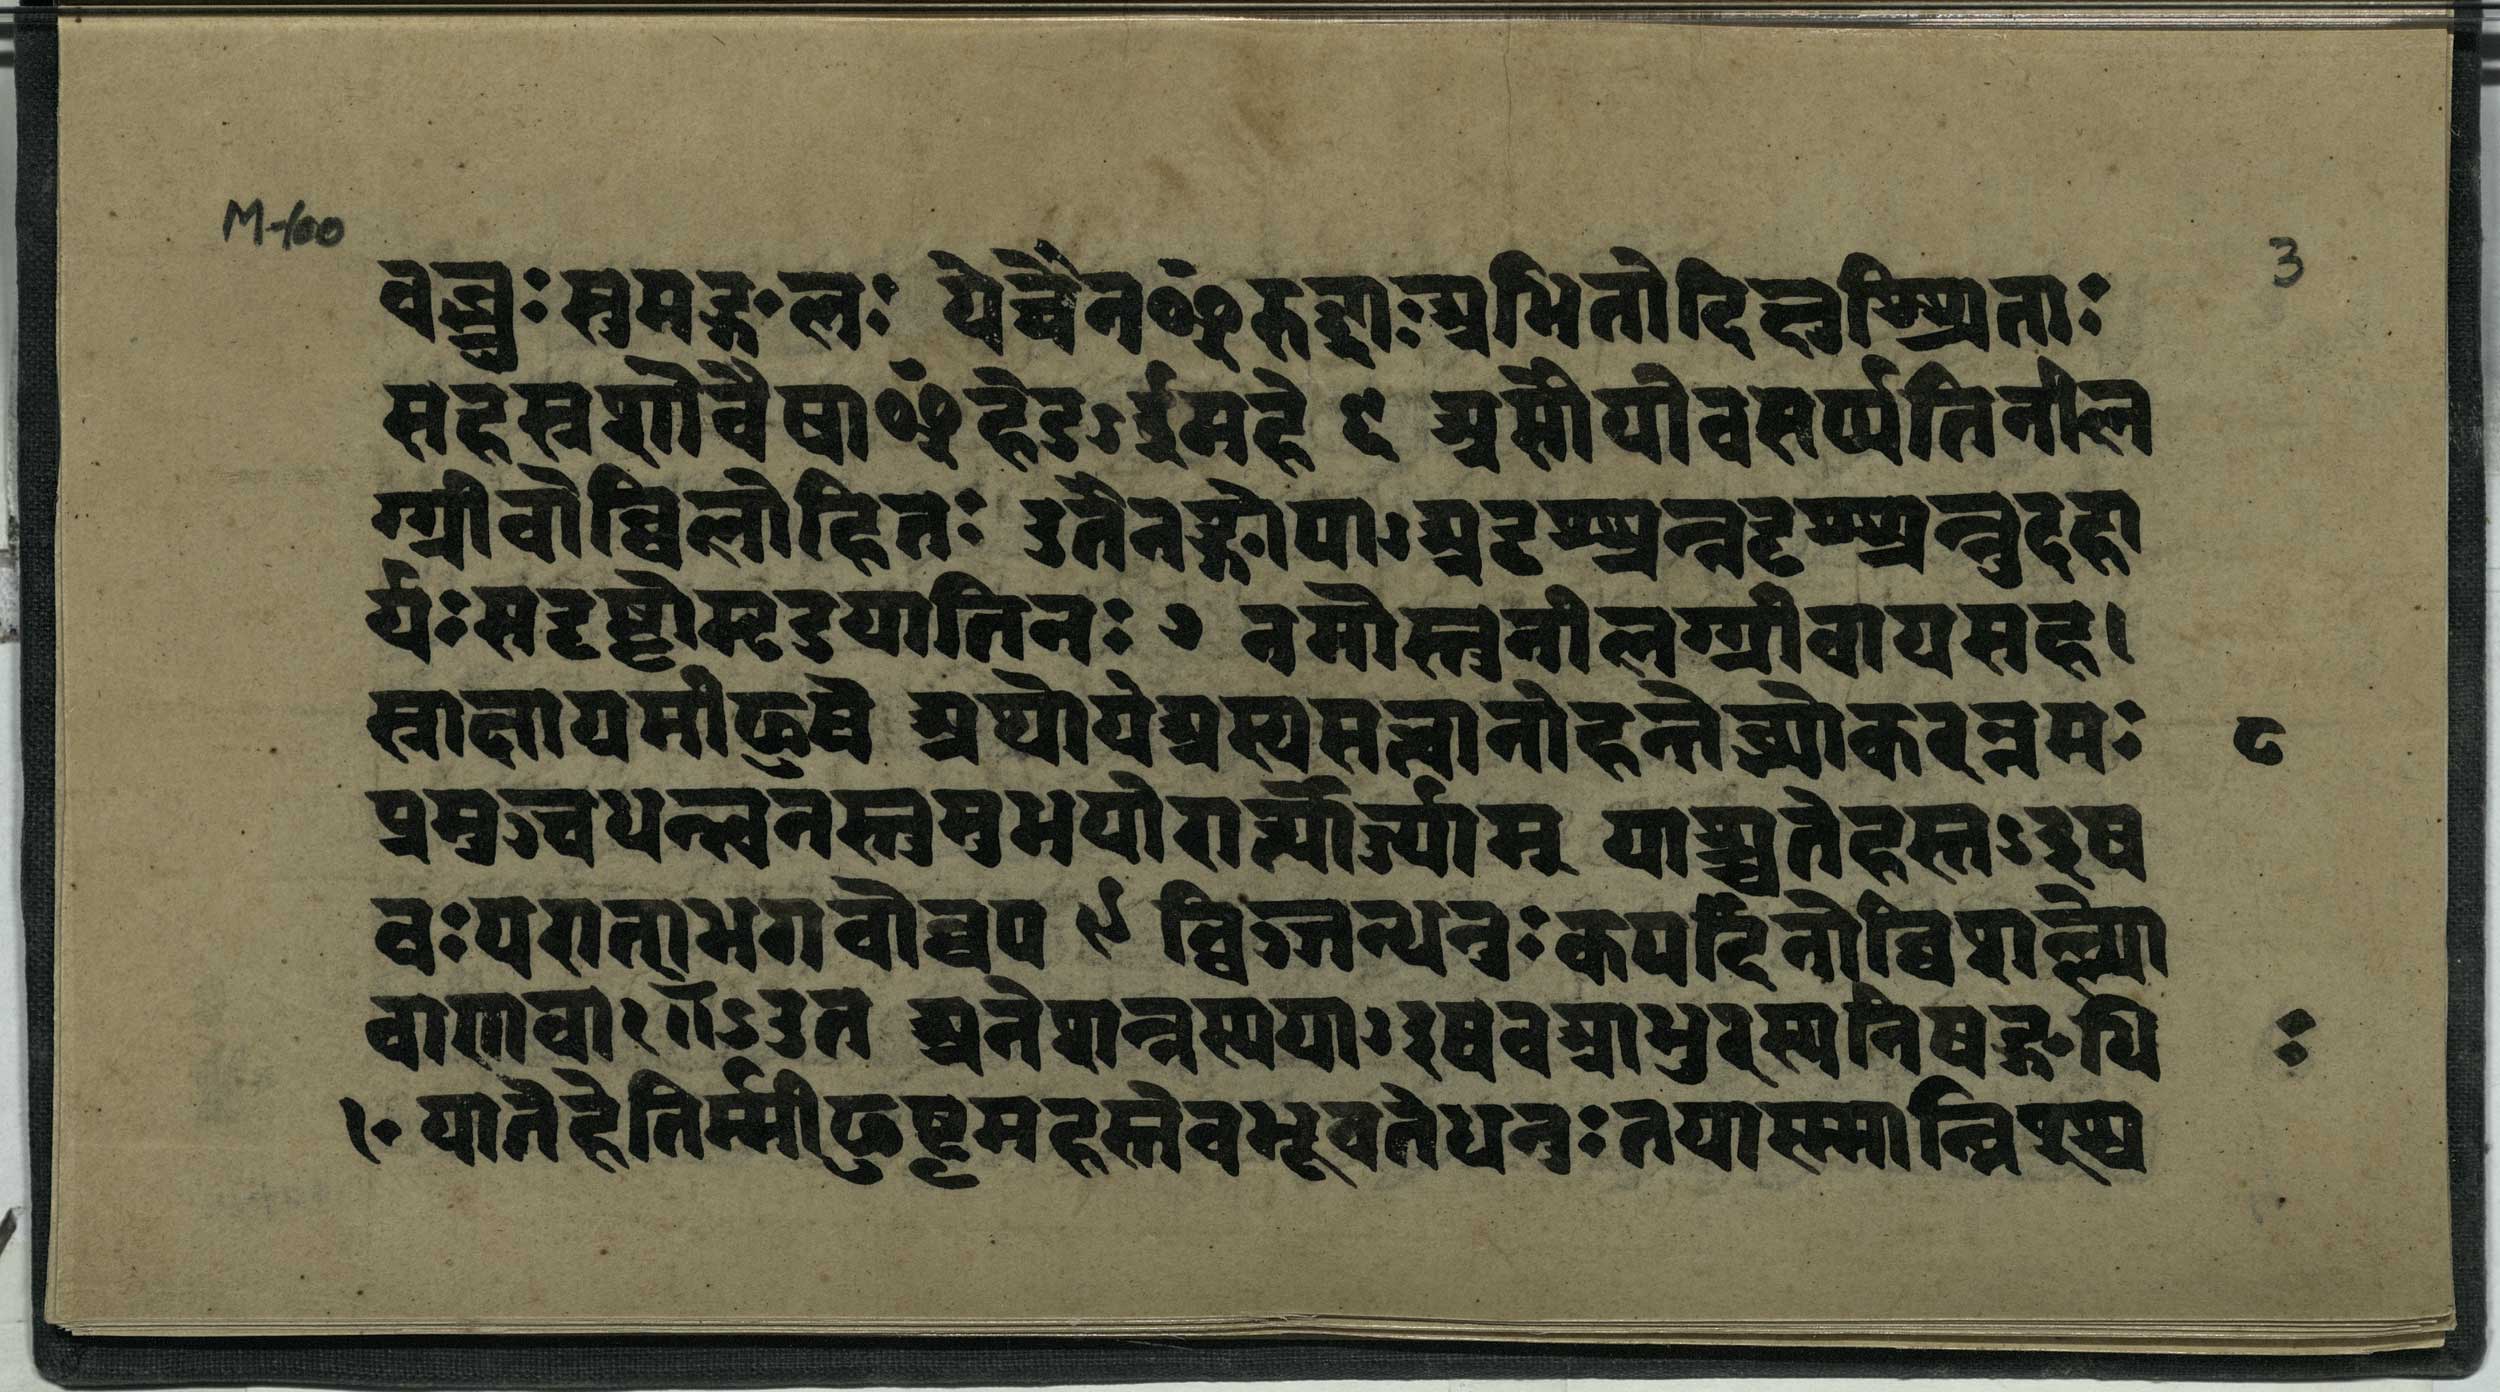 M-100
3
बब्भ्रुः सुमङ्गलः येचैनꣳरुद्राःअभितोदिक्षुश्श्रिताः
सहस्रशोवैषाꣳहेडऽईमहे ६ असौयोवसर्प्पतिनील
ग्ग्रीवोव्विलोहितः उतैनङ्गोपाऽअदृश्श्रन्नदृश्श्रन्नुदहा
र्यःसदृष्टोमृडयातिनः ७ नमोस्तुनीलग्ग्रीवायसह।
स्राक्षायमीढुषे अथोयेअस्यसत्वानोहन्तेब्भ्योकरन्नमः ८
प्रमुञ्चधन्वनस्त्वमुभयोरार्त्न्योर्ज्याम् याश्च्चतेहस्तऽइष
वःपराताभगवोव्वप ९ व्विज्ज्यन्धनुःकपर्दिनोव्विशल्ल्यो
बाणवा२ँऽउत अनेशन्नस्ययाऽइषवआभुरस्यनिषङ्गधिः
१॰ यातेहेतिर्म्मीढुष्टमहस्तेबभूवतेधनुः तयास्म्मान्न्विश्व